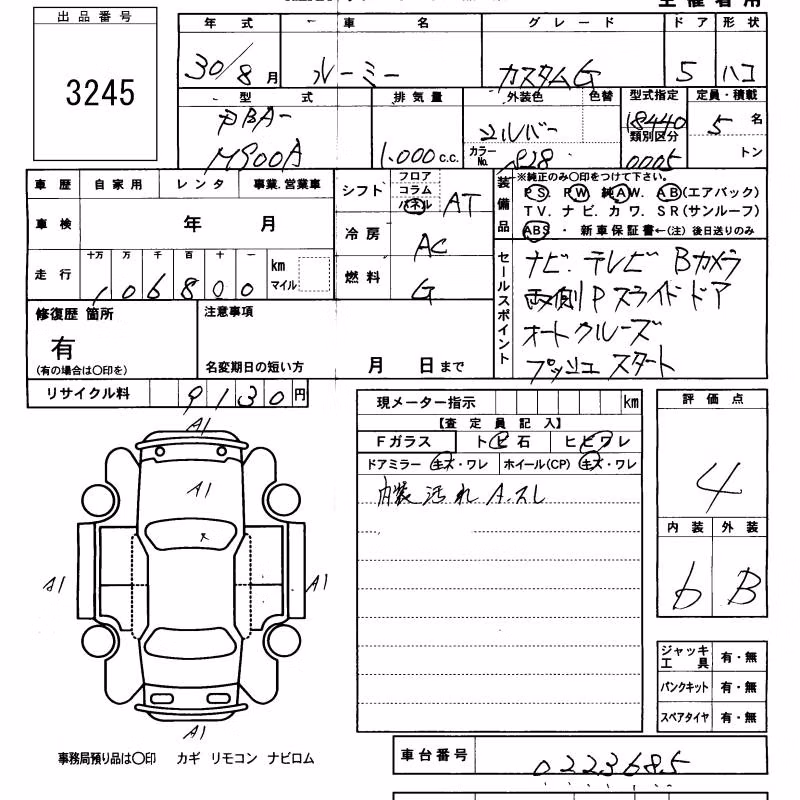 出品番号
3245
年式 車名 グレード ドア 形状
30/8月 ルーミー カスタムG 5 ハコ
型式 排気量 外装色 色替 型式指定 定員・積載
DBA- シルバー 18440 5名
類別区分
M900A 1.000c.c. カラーNo. S28 0005 トン
車歴 自家用 レンタ 事業.営業車
シフト フロア コラム パネル AT
装備品 ※純正のみ〇印をつけて下さい。
PS. PW 純AW. AB(エアバック)
TV. ナビ. カワ. SR(サンルーフ)
ABS ・ 新車保証書←(注) 後日送りのみ
車検 年 月
冷房 AC
走行 十万 万 千 百 十 一 km マイル
106800
燃料 G
セールスポイント
ナビ. テレビ Bカメラ
両側Pスライドドア
オートクルーズ
プッシュスタート
修復歴 箇所
有
(有の場合は〇印を)
注意事項
名変期日の短い方 月 日まで
リサイクル料 9130円
現メーター指示 km
【査定員記入】
Fガラス トビ石 ヒビワレ
ドアミラー キズ・ワレ ホイール(CP) キズ・ワレ
内装汚れ A.スレ
評価点
4
内装 外装
b B
A1
A1
A1 A1
A1
ジャッキ工具 有・無
パンクキット 有・無
スペアタイヤ 有・無
事務局預り品は〇印 カギ リモコン ナビロム
車台番号 0223685